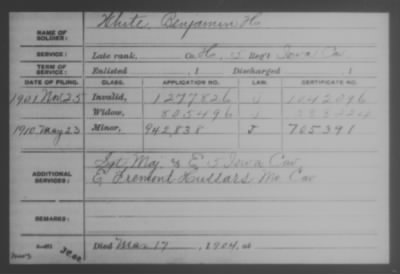 White, Benjamin H
NAME OF SOLDIER:
SERVICE: Late rank, Co. H, 5 Reg't Iowa Cav
TERM OF SERVICE: Enlisted , 1 Discharged , 1
DATE OF FILING. CLASS. APPLICATION NO. LAW. CERTIFICATE NO.
1901 Nov 25 Invalid, 1277826 1042096
Widow, 805496
1910 May 23 Minor, 942,838 J 705391
ADDITIONAL SERVICES: Sgt Maj & E 5 Iowa Cav
E Fremont Hussars Mo Cav
REMARKS:
Died Mar 17, 1904, at